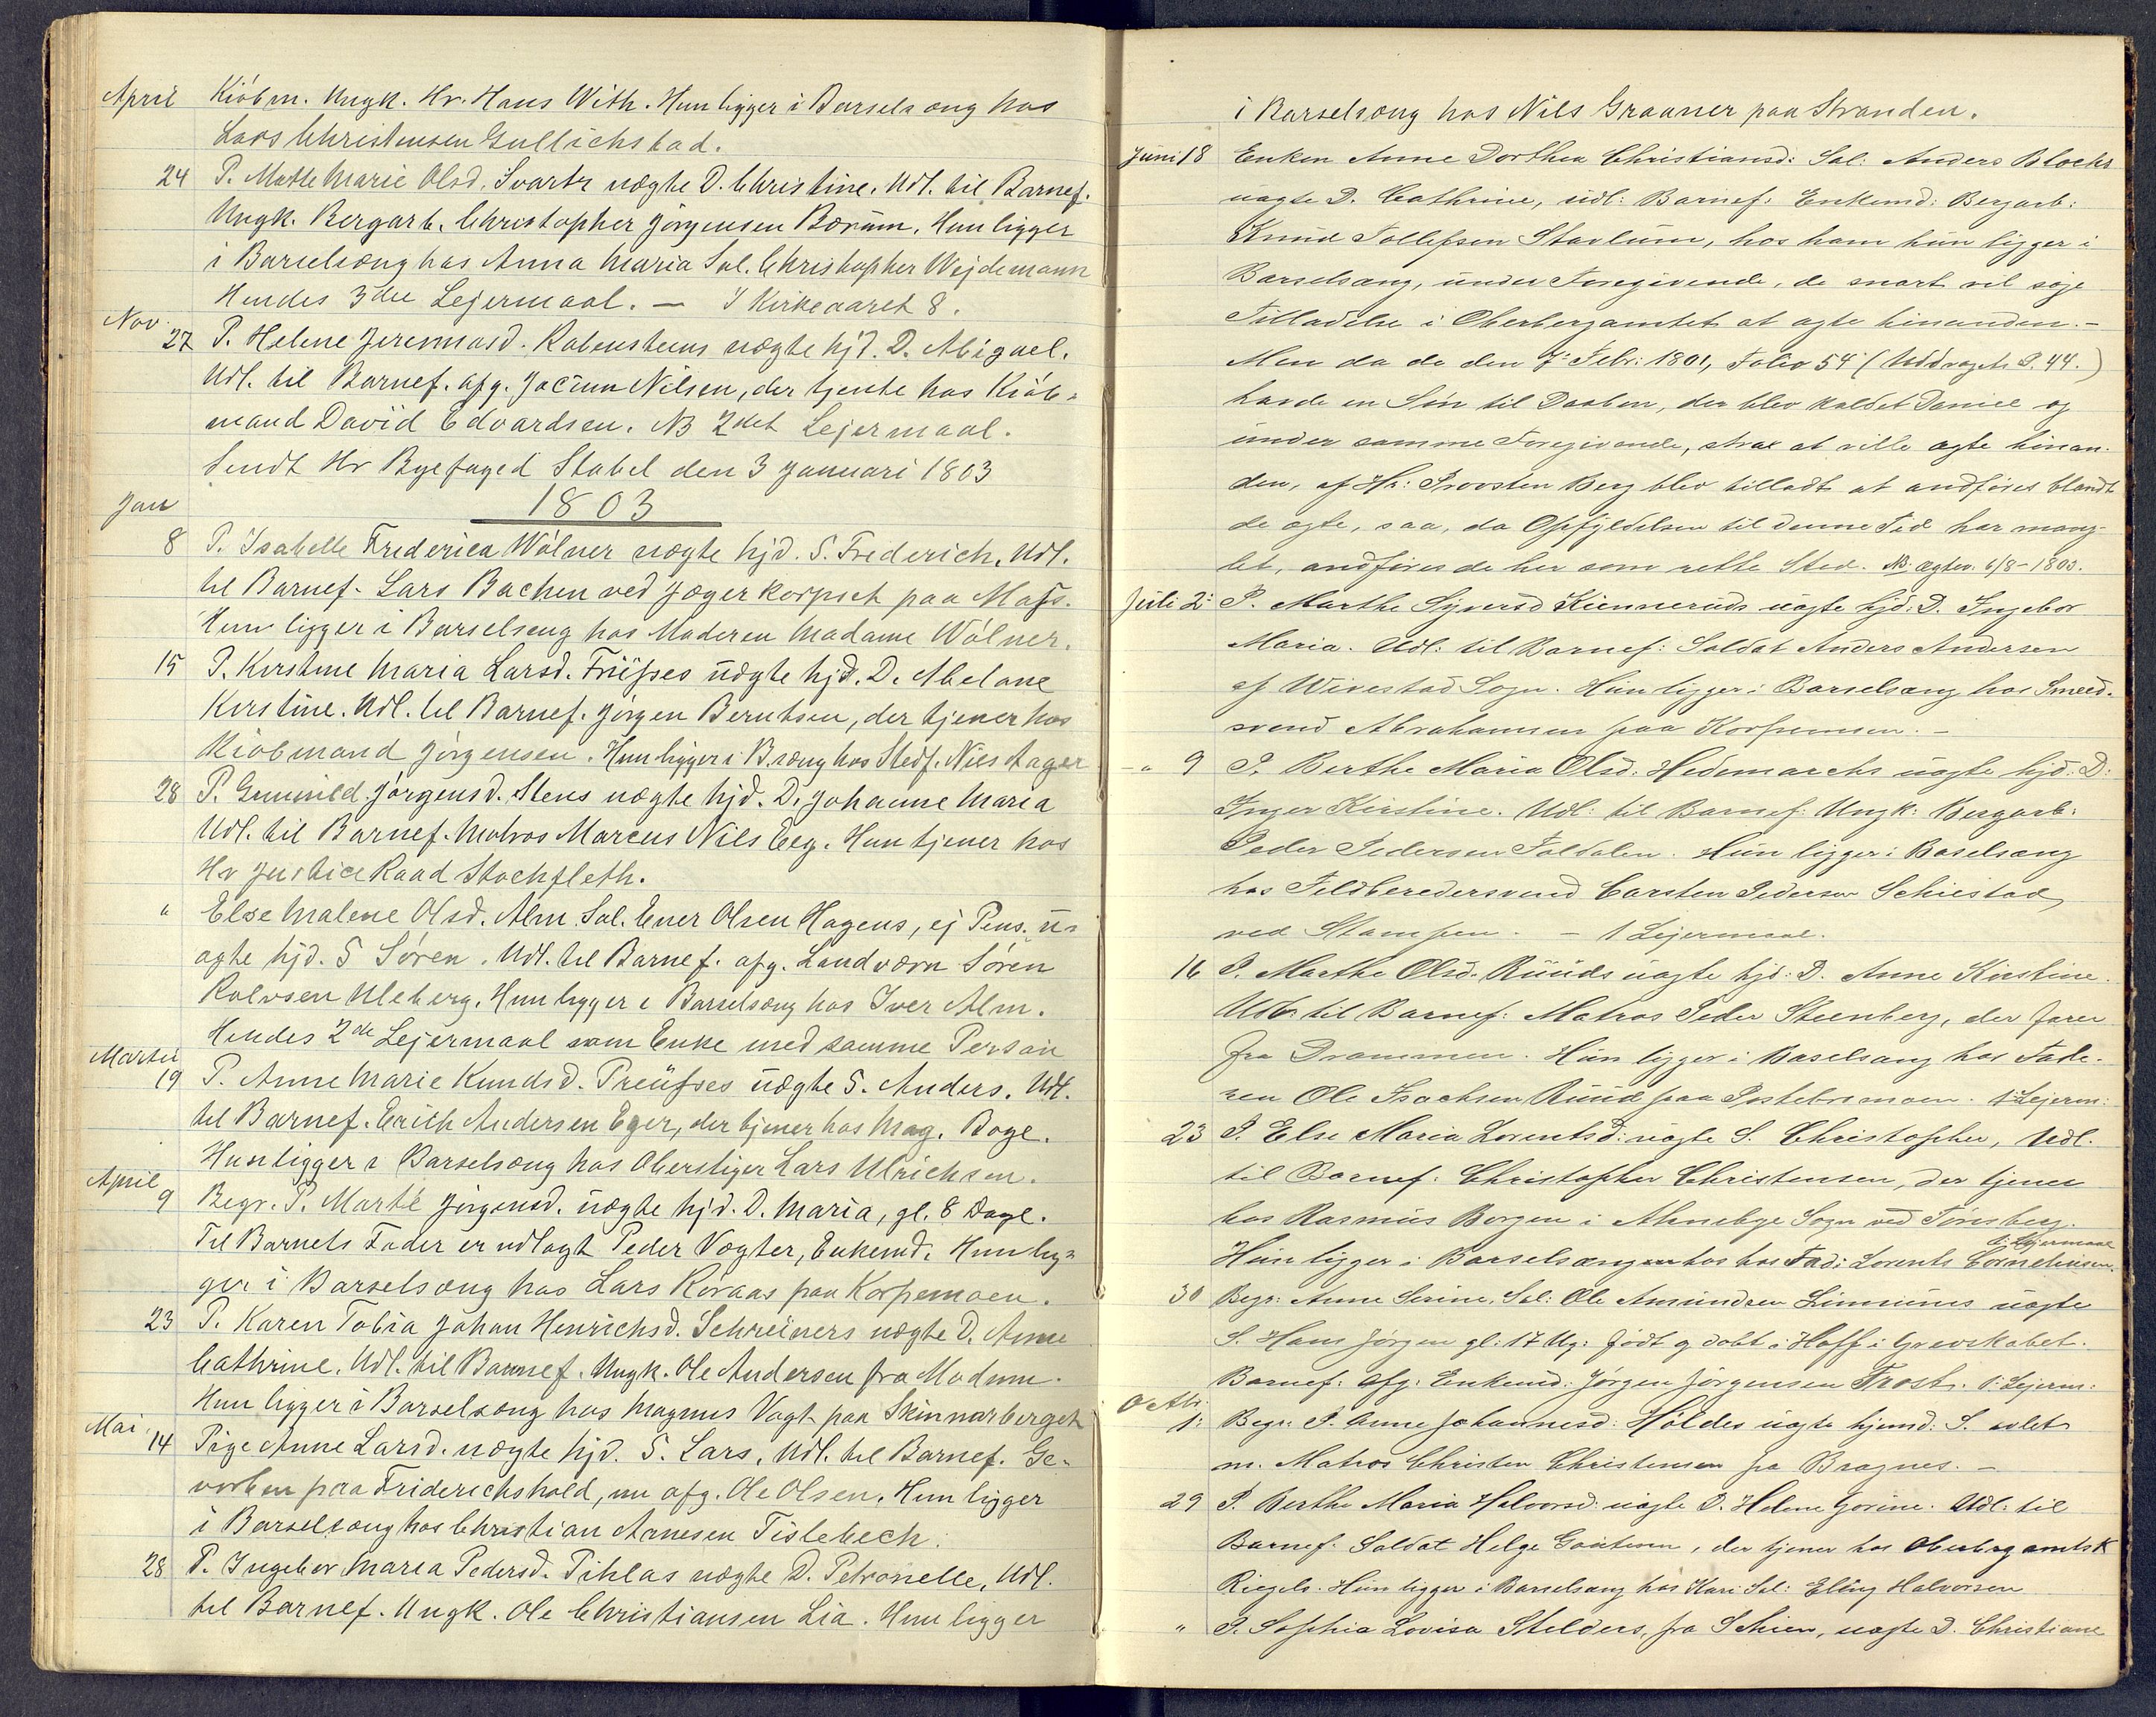 April Kiöbm. Ungk. Hr. Hans With. Hun ligger i Barselsæng hos
Lars Christensen Gullichstad.
24 P. Mattemarie Olsd. Svarts uægte D. Christine. Udl. til Barnef.
Ungk. Bergarb. Christopher Jörgensen Bærüm. Hun ligger
i Barselsæng hos Anna Maria Sal. Christopher Wejdemann
Hendes 3die Lejermaal. — I Kirkeaaret 8.
Nov. 27 P. Helene Jeremiasd. Rabensteens uægte hjd. D. Abigael.
Udl. til Barnef. afg. Jacün Nilsen, der tjente hos Kiöb-
mand David Edvardsen. NB 2det Lejermaal.
Sendt Hr Byefoged Stabel den 3 Januari 1803
Jan 1803
8 P. Isabelle Frederica Wölner uægte hjd. S. Frederich. Udl.
til Barnef. Lars Bachen ved Jægerkorpset paa Mofs.
Hun ligger i Barselseng hos Moderen Madame Wölner.
15 P. Kirstine Maria Larsd. Friifses üægte hjd. D. Abelone
Kirstine. Udl. til Barnef. Jörgen Berntsen, der tjener hos
Kiöbmand Jörgensen. Hun ligger i B.sæng hos Stedf. Nils Aager
28 P. Gunnild Jörgensd. Stens uægte hjd. D. Johanne Maria
Udl. til Barnef. Matros Marcus Nils Eeg. Hun tjener hos
Hr Justice Raad Stochfleth.
" Else Malene Olsd. Alm. Sal. Ener Olsen Hagens, ej Pens. ü-
ægte hjd. S Sören. Udl. til Barnef. afg. Landværn Sören
Rolvsen Uleberg. Hun ligger i Barselsæng hos Iver Alm.
Hendes 2de Lejermaal som Enke med samme Person
Martii 19 P. Anne Marie Knudsd. Preüfses üægte S. Anders. Udl.
til Barnef. Erich Andersen Eger, der tjener hos Mag. Boge.
Hun ligger i Barselsæng hos Oberstiger Lars Ulrichsen.
April 9 Begr. P. Marte Jörgensd. üægte hjd. D. Maria, gl. 8 Dage.
Til Barnets Fader er udlagt Peder Vogter, Enkemd. Hun lig-
ger i Barselsæng hos Lars Röraas paa Korpemoen.
23 P. Karen Tobia Johan Henrichsd. Schreiners uægte D. Anne
Cathrine. Udl. til Barnef. Ungk. Ole Andersen fra Modum.
Hun ligger i Barselsæng hos Magnus Vagt paa Skinnarberget
Mai 14 Pige Anne Larsd. uægte hjd. S. Lars. Udl. til Barnef. Ge-
vorben paa Friderichshald, nu afg. Ole Olsen. Hun ligger
i Barselsæng hos Christian Arnesen Tislebech.
28 P. Ingebor Maria Pedersd. Pihlas uægte D. Petronelle. Udl.
til Barnef. Ungk. Ole Christiansen Lia. Hun ligger
i Barselsæng hos Nils Graaner paa Stranden.
Juni 18 Enken Anne Dorthea Christiansd: Sal: Anders Blochs
uægte D. Cathrine, üdl: Barnef: Enkemd: Bergarb:
Knud Tollefsen Stavlum, hos ham hün ligger i
Barselsæng, under Foregivende, de snart vil søge
Tilladelse i Oberbergamtet at ægte hinanden. -
Men da de den 7: Febr: 1801, Folio 54 (Uddragets P. 44.)
havde en Søn til Daaben, der blev kaldet Daniel og
ünder samme Foregivende, strax at ville ægte hinan-
den, af Hr: Provsten Berg blev tilladt at andføres blandt
de ægte, saa, da Opfyldelsen til denne Tid har mang-
let, andføres de her som rette Sted. NB. ægtev. 6/8-1803.
Juli 2: P. Marthe Syversd Kiennerüds üægte hjd: D. Ingebor
Maria. Udl: til Barnef: Soldat Anders Andersen
af Wivestad Sogn. Hün ligger i Barselsæng hos Smeed-
svend Abrahamsen paa Korpemoen. -
- " 9 P. Berthe Maria Olsd: Hedemarchs üægte hjd: D:
Inger Kirstine. Udl: til Barnef: Ungk: Bergarb:
Peder Pedersen Foldalen. Hün ligger i Baselsæng
hos Feldberedersvend Carsten Pedersen Schiestad
ved Stampen. - 1 Lejermaal.
16 P. Marthe Olsd. Rüüds üægte hjd: D. Anne Kirstine.
Udl: til Barnef: Matros Peder Steenberg, der farer
fra Drammen. Hün ligger i Baselsæng hos Fade-
ren Ole Isachsen Rüüd paa Postebromoen. 1: Lejerm:
23 P. Else Maria Lorentsd: üægte S. Christopher, Udl.
til Barnef: Christopher Christensen, der tjener
hos Rasmüs Borgen i Ahnebye Sogn ved Tønsberg.
1: Lejermaal
Hün ligger i Barselsængen hos hos Fad: Lorents Corneliüsen.
30 Begr: Anne Serine, Sal: Ole Amündsen Linnüms üægte
S. Hans Jørgen gl: 17 Ug: født og døbt i Hoff i Grevskabet.
Barnef: Afg: Enkemd: Jörgen Jörgensen Trost. 1: Lejerm:
Octbr: 1: Begr: P. Anne Johannesd: Holdes üægte hjemd: S. avlet
m. Matros Christen Christensen fra Bragnes. -
29 P. Berthe Maria Halvorsd: üægte D. Helene Gorine. Udl: til
Barnef: Soldat Helge Goutesen, der tjener hos Oberbergamtsk
Riegels. Hün ligger i Barselsæng hos Kari Sal: Elling Halvorsen
" P. Sophia Lovisa Stelders, fra Schien, uægte D. Christiane